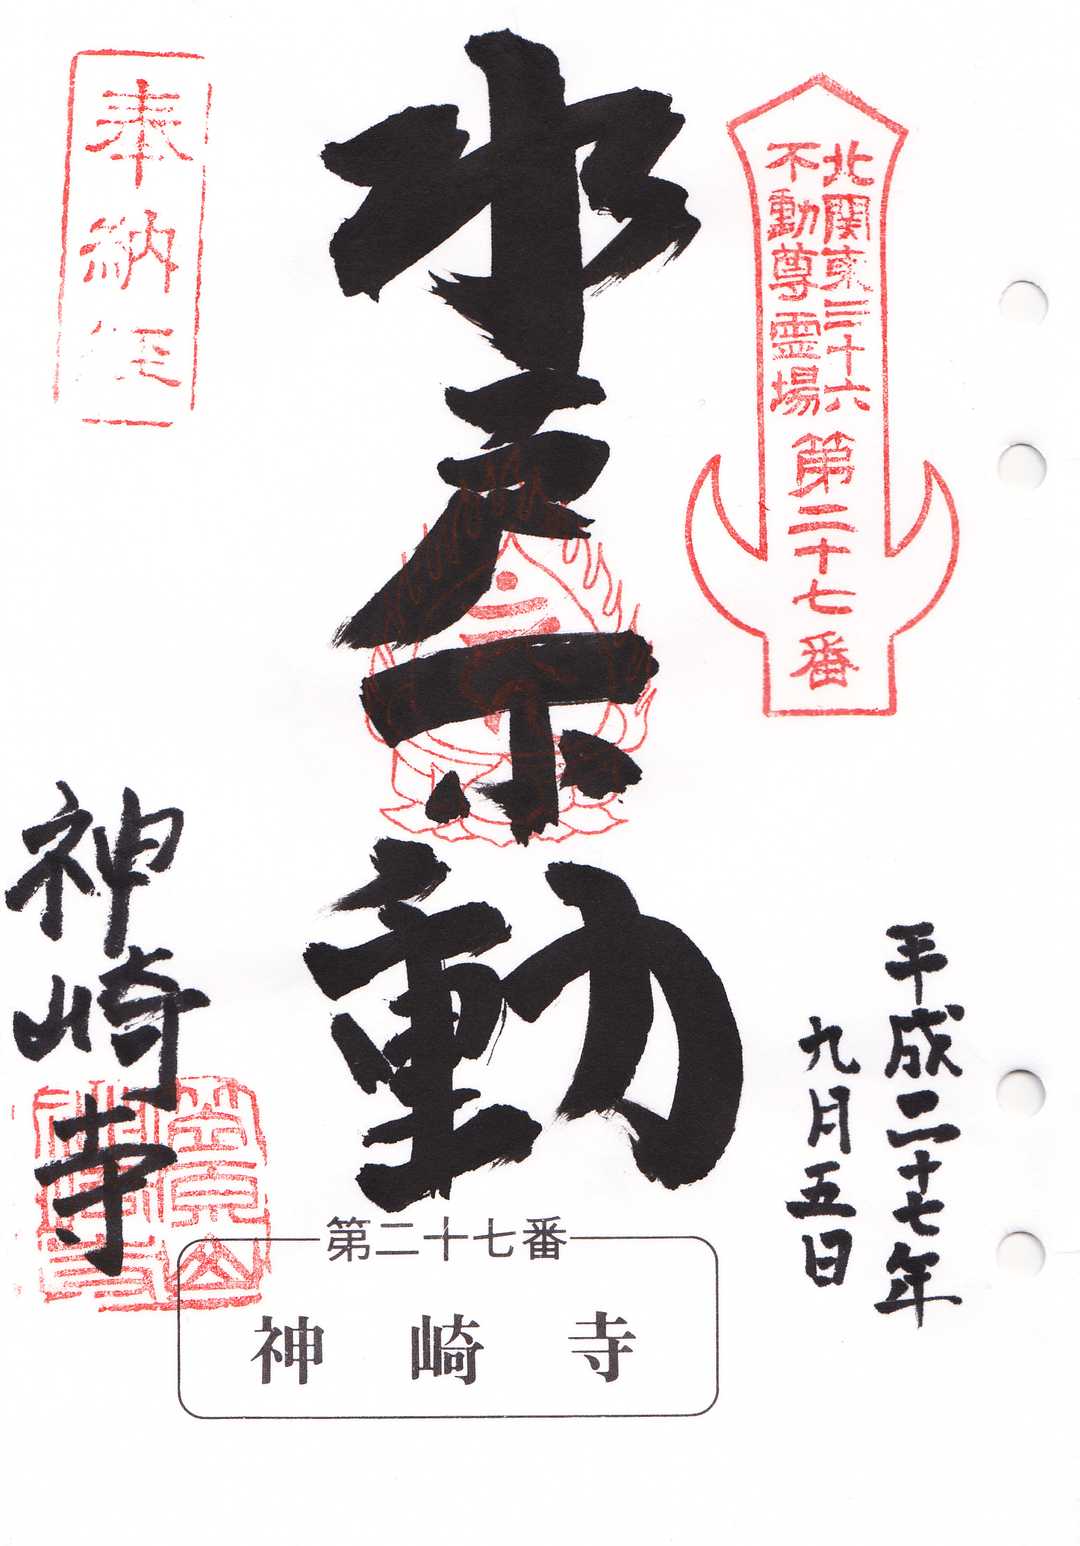 北関東三十六
不動尊霊場
第二十七番
平成二十七年
九月五日
水戸不動
奉納経
神崎寺
第二十七番
神崎寺